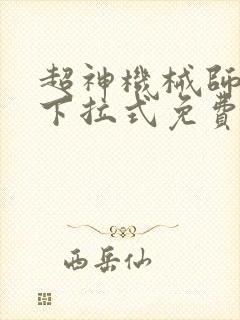 超神機械師
下拉式免費
西岳仙